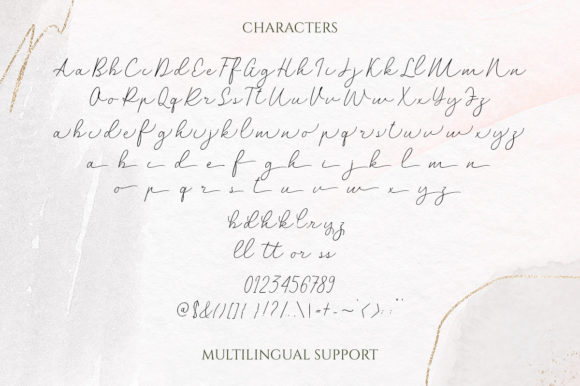 CHARACTERS
Aa Bb Cc Dd Ee Ff Gg Hh Ii Jj Kk Ll Mm Nn
Oo Pp Qq Rr Ss Tt Uu Vv Ww Xx Yy Zz
a b c d e f g h i j k l m n o p q r s t u v w x y z
a b c d e f g h i j k l m n
o p q r s t u v w x y z
b d h k l r y z
ll tt or ss
0123456789
@$&()[]{}!?/|..\|=+-~'<>:;"
MULTILINGUAL SUPPORT